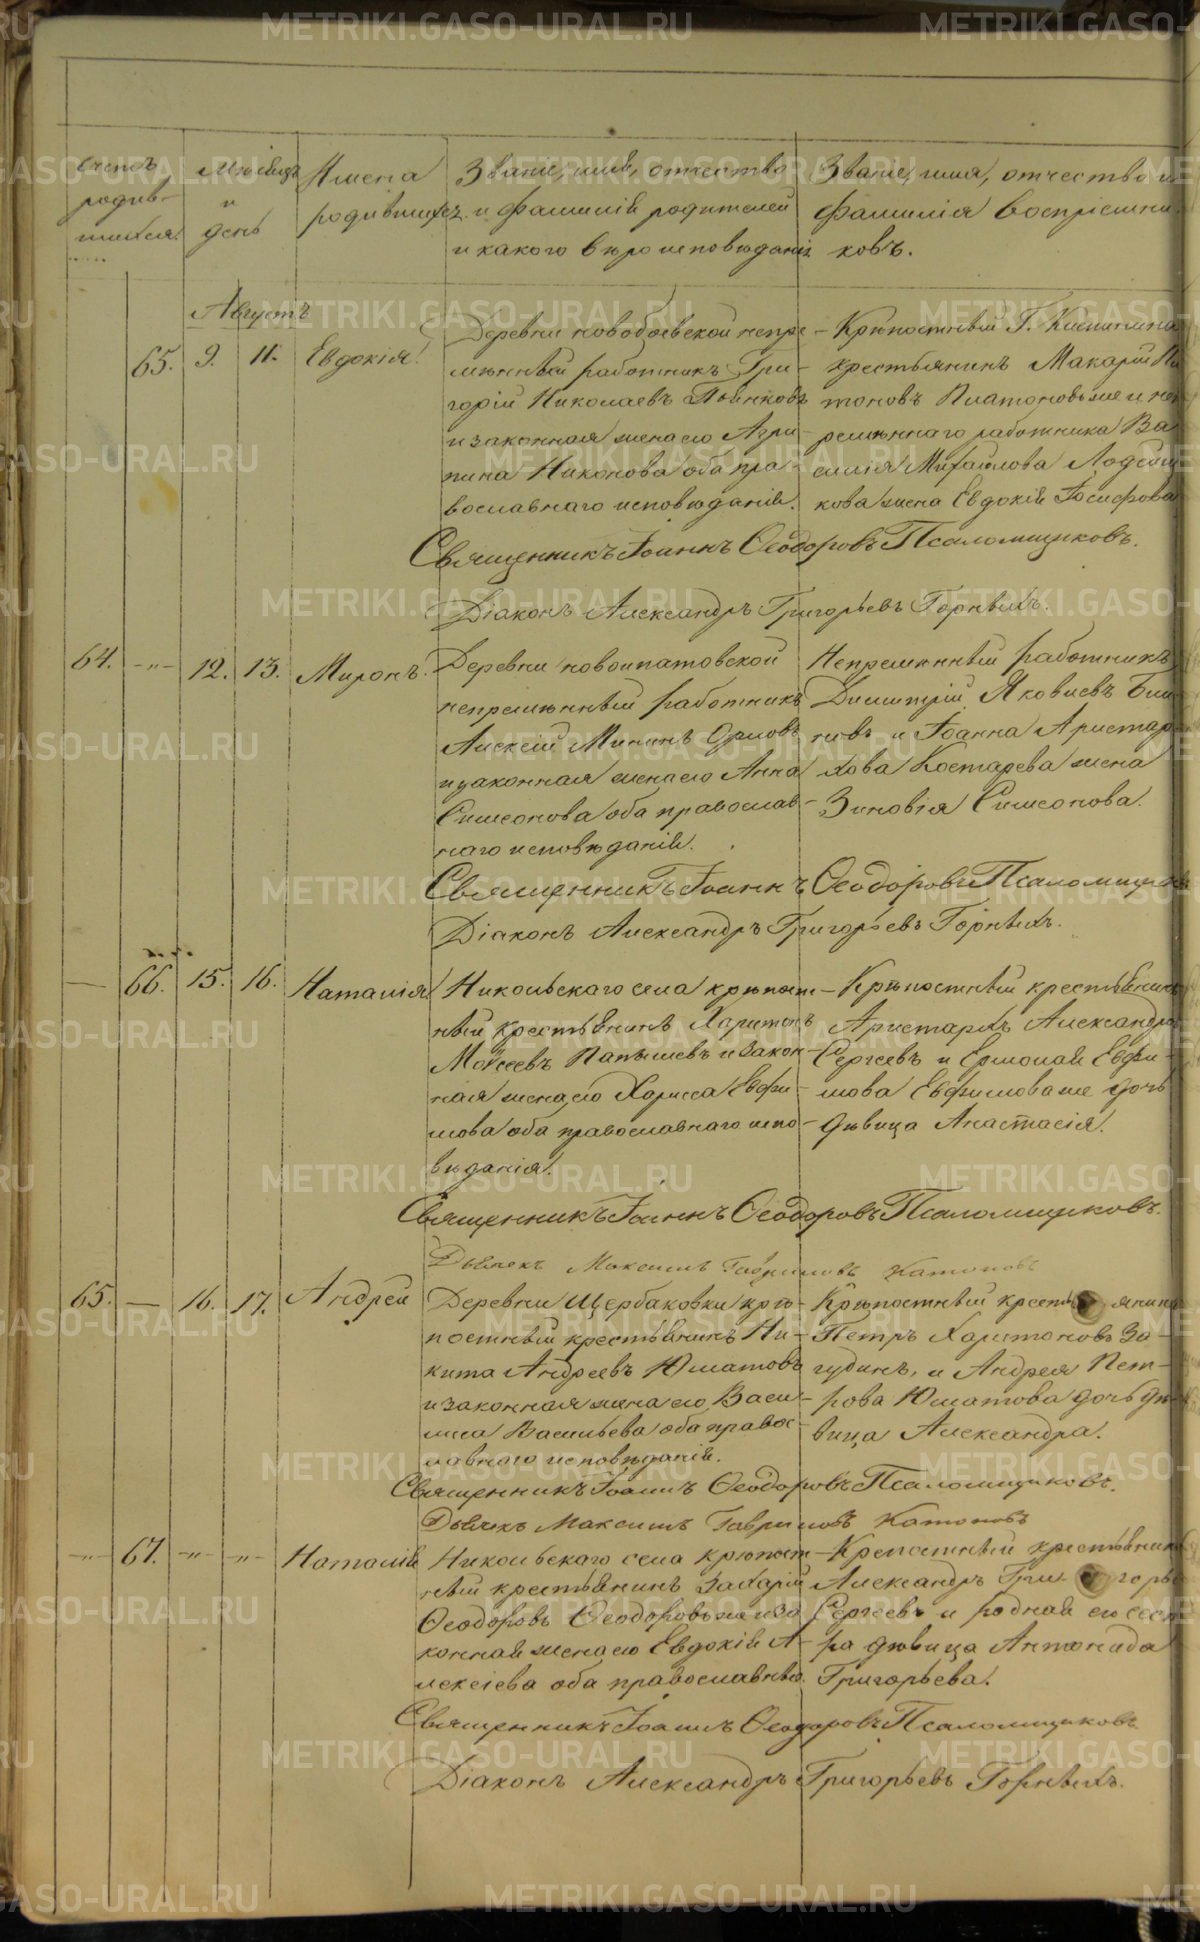 Счетъ родив-шихся.
Мѣсяцъ и день
Имена родившихся.
Званіе, имя, отчество и фамилія родителей и какого вѣроисповѣданія
Званіе, имя, отчество и фамилія воспріемниковъ.
Августъ
65. 9. 11. Евдокія.
Деревни новобоевской непре-
мѣнный работникъ Гри-
горій Николаевъ
и законная жена его Агри-
пина Никонова оба пра-
вославнаго исповѣданія.
Крѣпостный Г.
крестьянинъ Макарій
тоновъ Платоновъ же и не
ремѣннаго работника Ва
силія Михайлова
кова жена Евдокія Іосифова
Священникъ Іоаннъ Ѳеодоровъ Псаломщиковъ.
Діаконъ Александръ Григорьевъ Горныхъ.
64. -"- 12. 13. Миронъ.
Деревни новоипатовской
непремѣнный работникъ
Алексій Мининъ Орловъ
и законная жена его Анна
Симеонова оба православ-
наго исповѣданія.
Непремѣнный работникъ
Димитрій Яковлевъ
новъ и Іоанна Аристар
хова Костарева жена
Зиновія Симеонова.
Священникъ Іоаннъ Ѳеодоровъ Псаломщиков
Діаконъ Александръ Григорьевъ Горныхъ.
— 66. 15. 16. Наталія
Никольскаго села крѣпост-
ный крестьянинъ Харитонъ
Моѵсеевъ Папышевъ и закон-
ная жена его Хариеса Евфи-
мова оба православнаго испо-
вѣданія.
Крѣпостный крестьянинъ
Аристархъ Александро
Сергеевъ и Ермолая Евфи-
мова Евфимова же дочь
дѣвица Анастасія.
Священникъ Іоаннъ Ѳеодоровъ Псаломщиковъ.
Дьячекъ Максимъ Гавриловъ Катоновъ
65. — 16. 17. Андрей
Деревни Щербаковки крѣ-
постный крестьянинъ Ни-
кита Андреевъ Юматовъ
и законная жена его Васи-
лиса Васильева оба правос-
лавнаго исповѣданія.
Крѣпостный крестьянинъ
Петръ Харитоновъ За-
гудинъ, и Андрея Пет-
рова Юматова дочь дѣ
вица Александра.
Священникъ Іоаннъ Ѳеодоровъ Псаломщиковъ.
Дьячекъ Максимъ Гавриловъ Катоновъ
-"- 67. -"- -"- Наталія
Никольскаго села крѣпост-
ный крестьянинъ Захарій
Ѳеодоровъ Ѳеодоровъ же и за
конная жена его Евдокія А-
лексіева оба православнаго.
Крепостный крестьянин
Александръ Григорье
Сергеевъ и родная его сест
ра дѣвица Антонида
Григорьева.
Священникъ Іоаннъ Ѳеодоровъ Псаломщиковъ
Діаконъ Александръ Григорьевъ Горныхъ.
METRIKI.GASO-URAL.RU